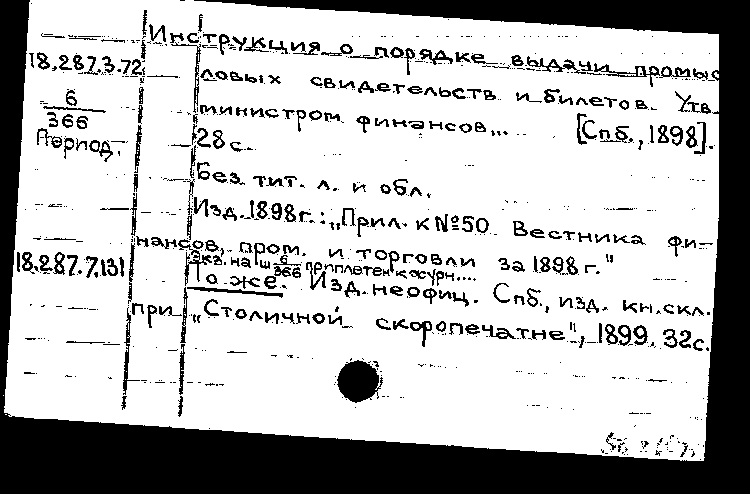 Инструкция о порядке выдачи промыс
18.287.3.72 ловых свидетельств и билетов. Утв.
6/366 министром финансов,.. [Спб., 1898].
Период. 28 с.
Без тит. л. и обл.
Изд. 1898г.: „Прил. к №50 Вестника фи-
нансов, пром. и торговли за 1898 г."
экз. на ш 6/366 приплетен к осурн....
18.287.7.131 То же. Изд. неофиц. Спб., изд. кн. скл.
при „Столичной скоропечатне", 1899. 32с.